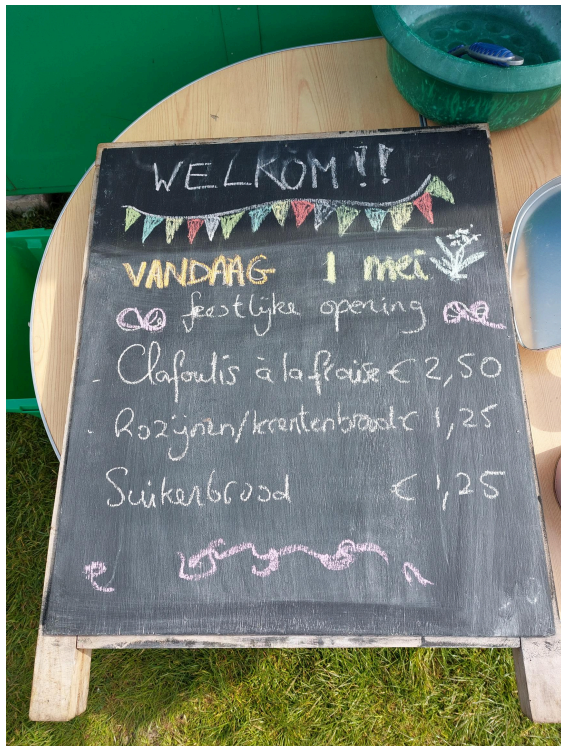 WELKOM!!
VANDAAG 1 mei
feestlijke opening
- Clafoutis à la fraise € 2,50
- Rozijnen/krentenbrood € 1,25
Suikerbrood € 1,25